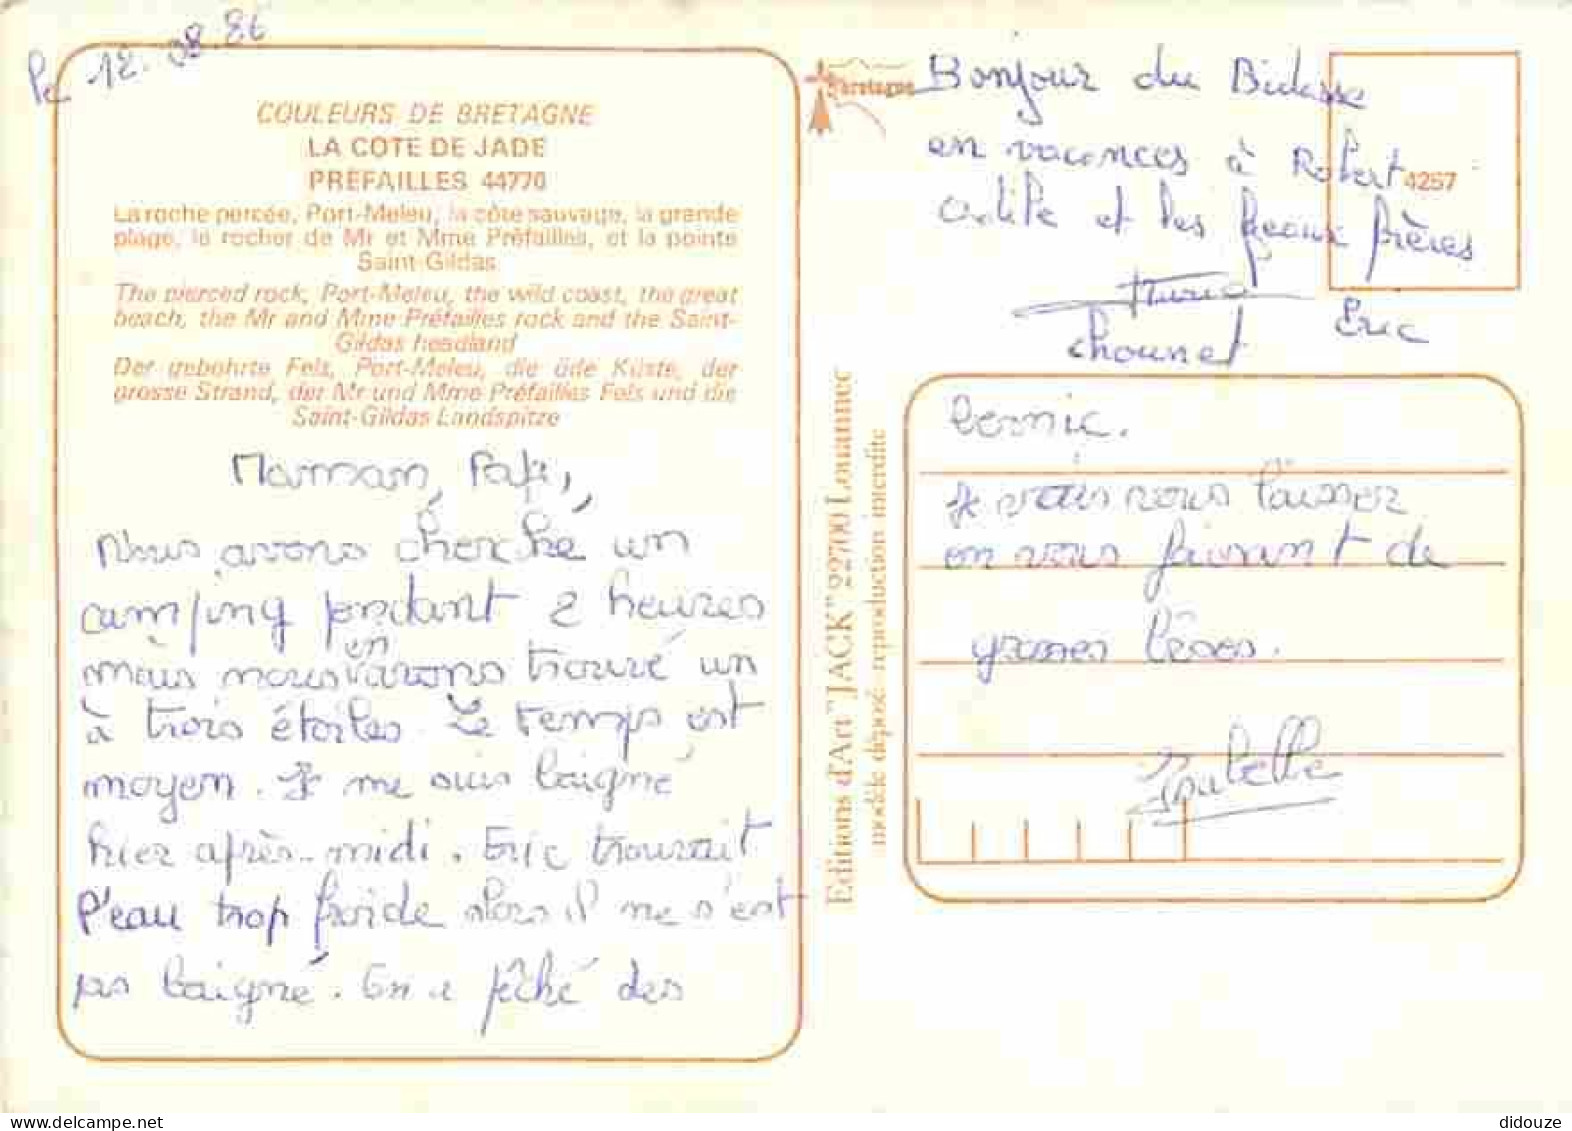 Le 12.08.86
COULEURS DE BRETAGNE
LA COTE DE JADE
PRÉFAILLES 44770
La roche percée, Port-Meleu, la côte sauvage, la grande
plage, le rocher de Mr et Mme Préfailles, et la pointe
Saint-Gildas
The pierced rock, Port-Meleu, the wild coast, the great
beach, the Mr and Mme Préfailles rock and the Saint-
Gildas headland
Der gebohrte Fels, Port-Meleu, die öde Küste, der
grosse Strand, der Mr und Mme Préfailles Fels und die
Saint-Gildas Landspitze
Maman, Papi,
Nous avons cherché un
camping pendant 2 heures
mais nous en avons trouvé un
à trois étoiles. Le temps est
moyen. Je me suis baigné
hier après-midi. Eric trouvait
l'eau trop froide alors il ne s'est
pas baigné. On a pêché des
Bretagne
Bonjour du
en vacances à Robert
Odile et les beaux frères
Eric
4257
Editions d'Art "JACK" 22700 Louannec
modèle déposé - reproduction interdite
bernic.
Je vais vous laisser
en vous faisant de
grosses bises.
Isabelle
didouze